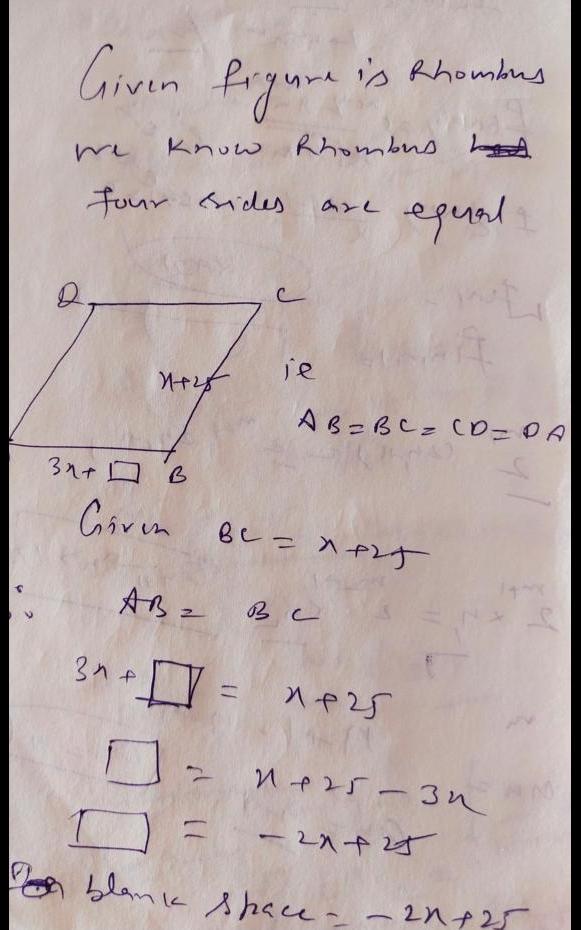 Given figure is Rhombus
we know Rhombus
four sides are equal
D C
x+25 ie
AB=BC=CD=DA
3x+□ B
Given BC = x+25
∴ AB = BC
3x+□ = x+25
□ = x+25-3x
□ = -2x+25
blank space = -2x+25